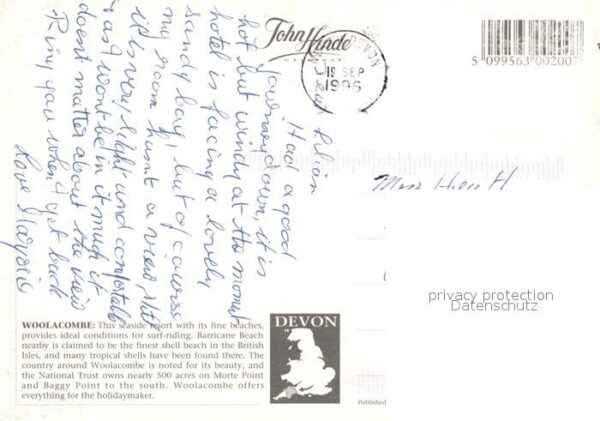 John Hinde
ORIGINAL
DEVON
19 SEP
1996
5 099563 00200
Dear
Had a good
journey down, it is
hot but windy at the moment
hotel is facing a lovely
sandy bay, but of course
my room hasn't a view still
it's very light and comfortable
as I wont be in it much it
doesn't matter about the view
Ring you when I get back
love
H
privacy protection
Datenschutz
WOOLACOMBE: This seaside resort with its fine beaches,
provides ideal conditions for surf-riding. Barricane Beach
nearby is claimed to be the finest shell beach in the British
Isles, and many tropical shells have been found there. The
country around Woolacombe is noted for its beauty, and
the National Trust owns nearly 500 acres on Morte Point
and Baggy Point to the south. Woolacombe offers
everything for the holidaymaker.
DEVON
Published